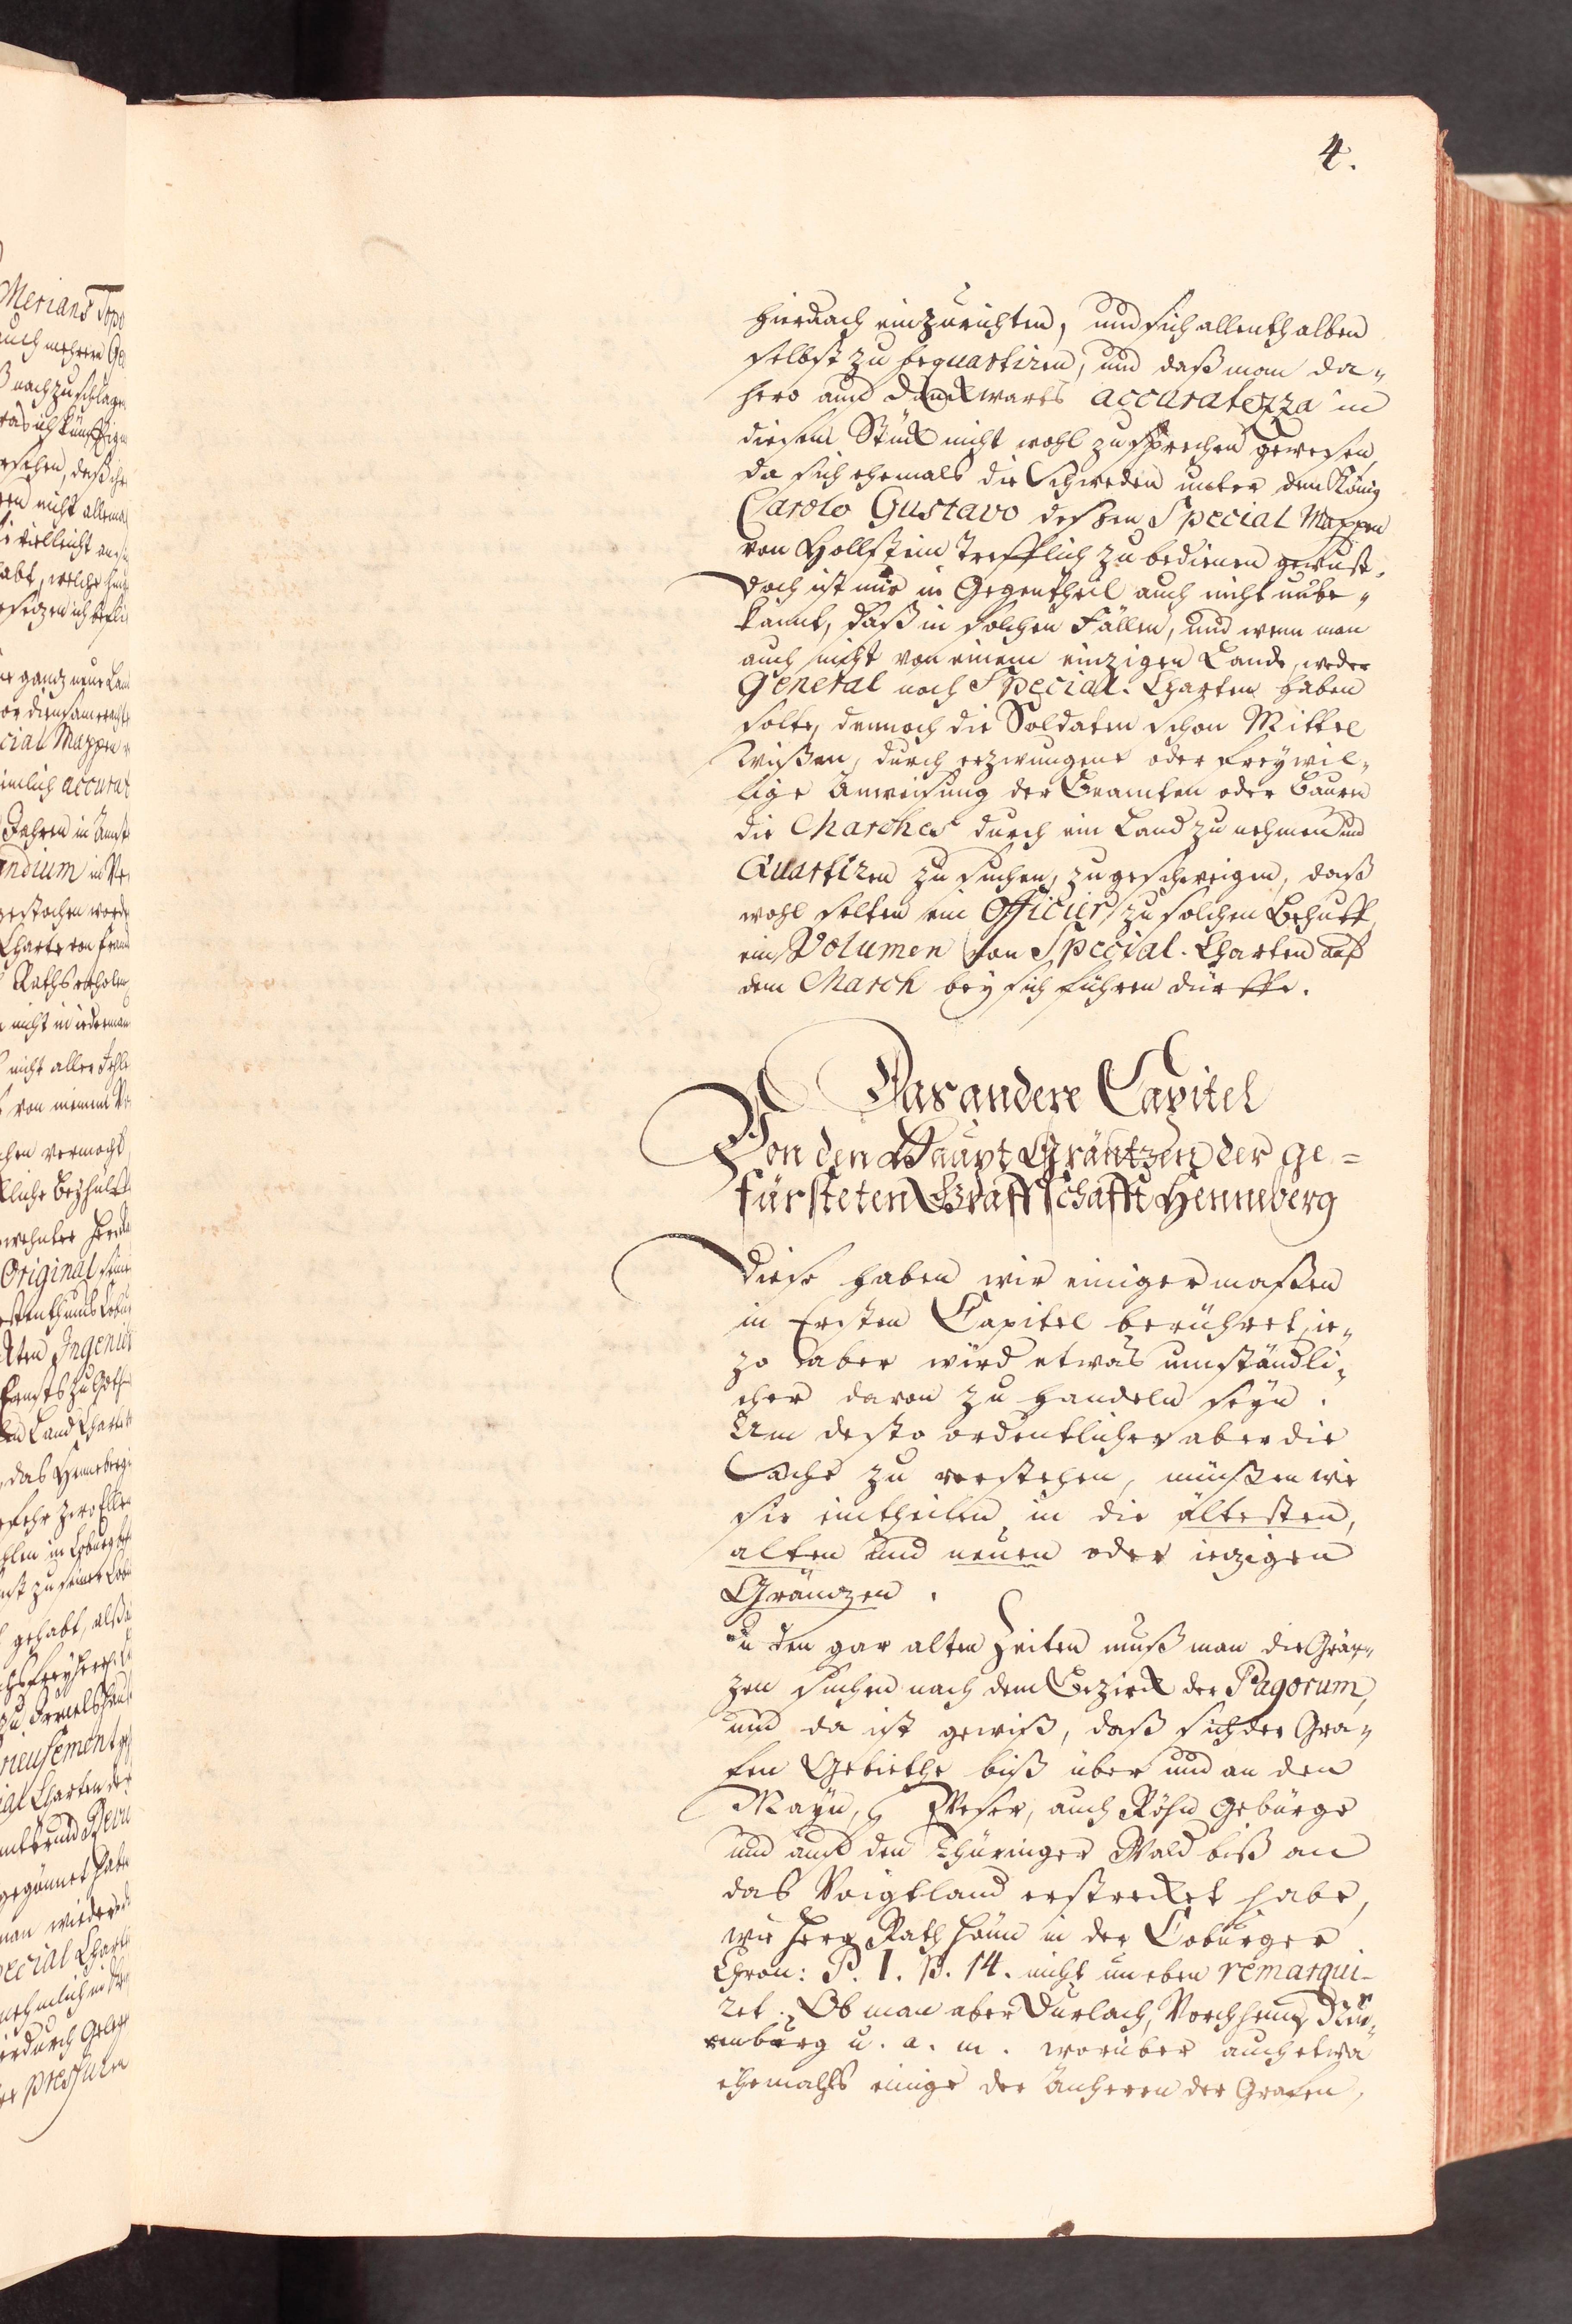 4.
hiernach einzurichten, und sich allenthalben
selbst zu bequartiren, und daß man da-
hero auf Danckwarts accuratezza in
diesem Stück nicht wohl zu sprechen gewesen,
da sich ehemals die Schweden unter dem König
Carolo Gustavo dessen Special Mappen
von Hollstein trefflich zu bedienen gewust.
Doch ist mir in Gegentheil auch nicht unbe-
kannt, daß in solchen Fällen, und wenn man
auch nicht von einem einzigen Lande, weder
General noch Special-Charten haben
solte, dennoch die Soldaten schon Mittel
wißen, durch erzwungene oder freywil-
lige Anweisung der Beamten oder Bauern
die Marches durch ein Land zu nehmen und
Quartiren zu suchen, zugeschweigen, daß
wohl selten ein Officier zu solchen Behuff
ein Volumen von Special-Charten auf
dem March bey sich führen dürffte.
Das andere Capitel
Von den Haupt Gräntzen der ge=
fürsteten Graffschafft Henneberg
Diese haben wir einigermaßen
in Ersten Capitel berühret, ie-
zo aber wird etwas umständli-
cher davon zu handeln seyn.
Um desto ordentlicher aber die
Sache zu verstehen, müßen wir
sie eintheilen in die ältesten,
alten und neuen oder iezigen
Gränzen.
In den gar alten Zeiten muß man die Grän-
zen suchen nach dem Bezirck der Pagorum,
und da ist gewiß, daß sich der Gra-
fen Gebiethe biß über und an den
Mayn, Weser, auch Röhn Gebürge
und auf den Thüringer Wald biß an
das Voigtland erstrecket habe,
wie Herr Rath Hönn in der Coburger
Chron: P. I. p. 14. nicht uneben remarqui-
ret. Ob man aber Durlach, Vorchheim, Nür-
renburg u. a. m. worüber auch etwa
ehemahls einige der Anherren der Grafen,